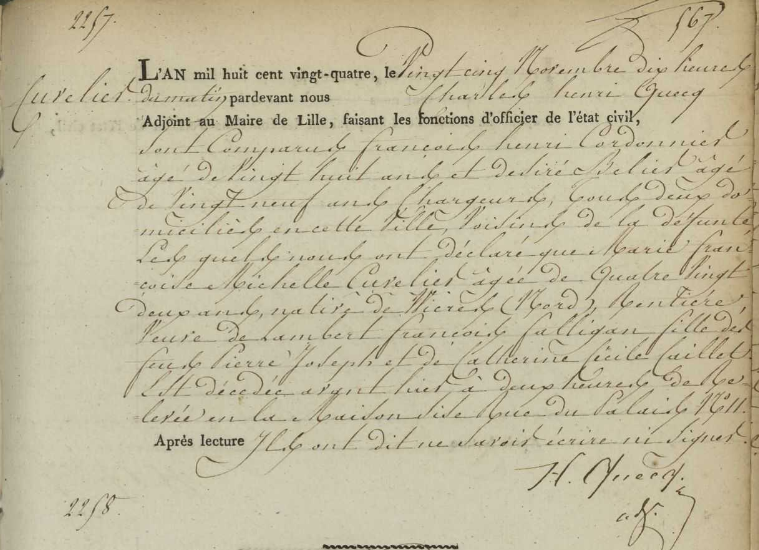 2257.
567.
L'AN mil huit cent vingt-quatre, le Vingt cinq Novembre dix heures
Cuvelier. du matin, pardevant nous Charles henri Quecq
Adjoint au Maire de Lille, faisant les fonctions d'officier de l'état civil,
sont Comparus françois henri Cordonnier
âgé de Vingt huit ans et desiré Belin âgé
de Vingt neuf ans Chargeurs, tous deux do-
miciliés en cette Ville, Voisins de la defunte
Les quels nous ont déclaré que Marie fran
çoise Michelle Cuvelier âgée de Quatre Vingt
deux ans, native de Wicres (Nord), Rentière
Veuve de Lambert françois falligan fille des
feus Pierre Joseph et de Catherine Cécile faillet
Est décédée avant hier, à deux heures de Re-
levée en la Maison sise Rue du Palais N.° 11.
Après lecture Ils ont dit ne savoir écrire ni signer.
H. Quecq.
adj.
2258.